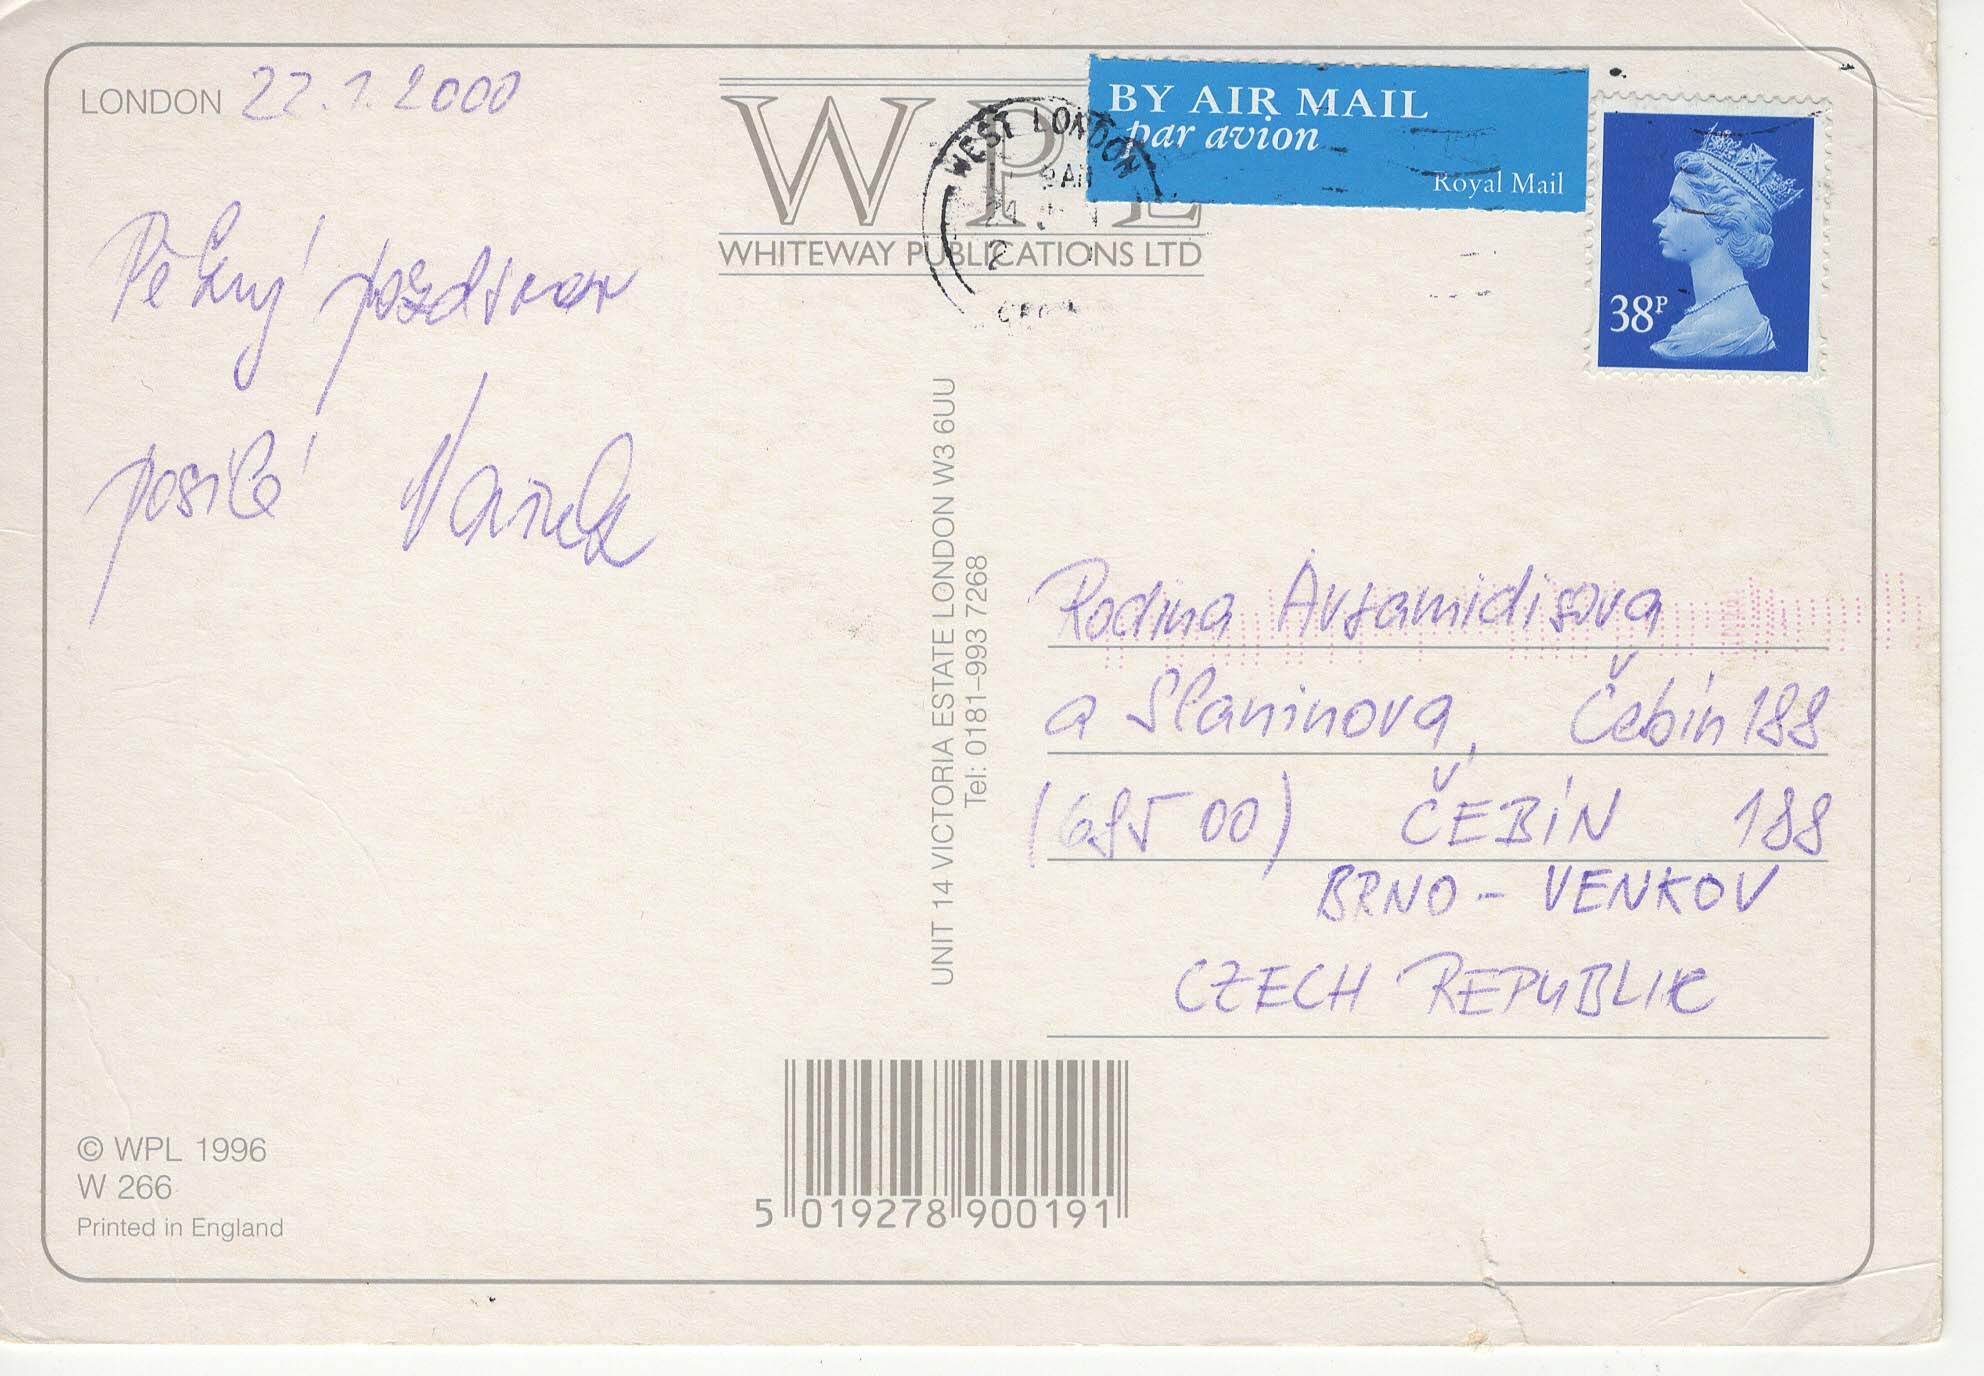 LONDON 22.1.2000
Pěkný pozdrav
posílá
WPL
WHITEWAY PUBLICATIONS LTD
WEST LONDON
BY AIR MAIL
par avion
Royal Mail
38P
UNIT 14 VICTORIA ESTATE LONDON W3 6UU
Tel: 0181–993 7268
Rodina Avramidisova
a Slaninova, Čebín 188
(695 00) ČEBÍN 188
BRNO - VENKOV
CZECH REPUBLIC
© WPL 1996
W 266
Printed in England
5 019278 900191